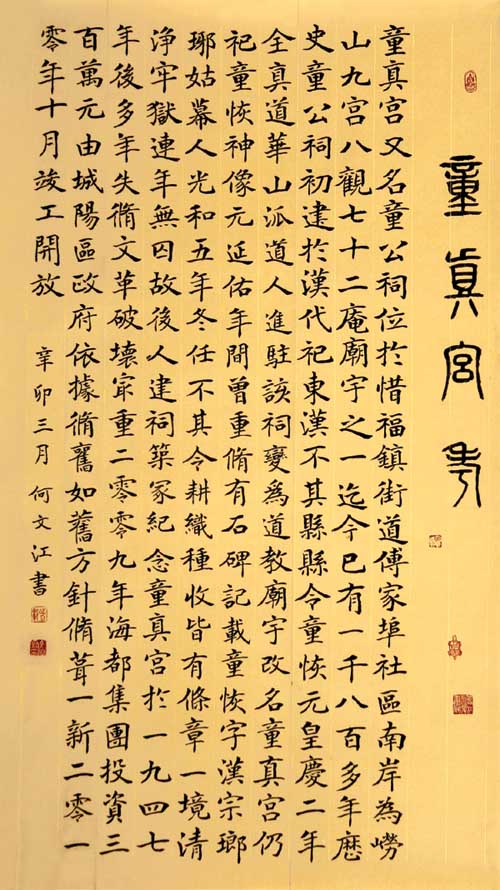 童真宫考
童真宫又名童公祠位於惜福鎮街道傅家埠社區南岸為嶗
山九宫八觀七十二庵廟宇之一迄今已有一千八百多年歷
史童公祠初建於漢代祀東漢不其縣縣令童恢元皇慶二年
全真道華山派道人進駐該祠變為道教廟宇改名童真宫仍
祀童恢神像元延佑年間曾重脩有石碑記載童恢字漢宗瑯
琊姑幕人光和五年冬任不其令耕織種收皆有條章一境清
净牢獄連年無囚故後人建祠築冢紀念童真宫於一九四七
年後多年失脩文革破壞㝡重二零零九年海都集團投資三
百萬元由城陽區政府依據脩舊如舊方針脩葺一新二零一
零年十月竣工開放
辛卯三月 何文江書